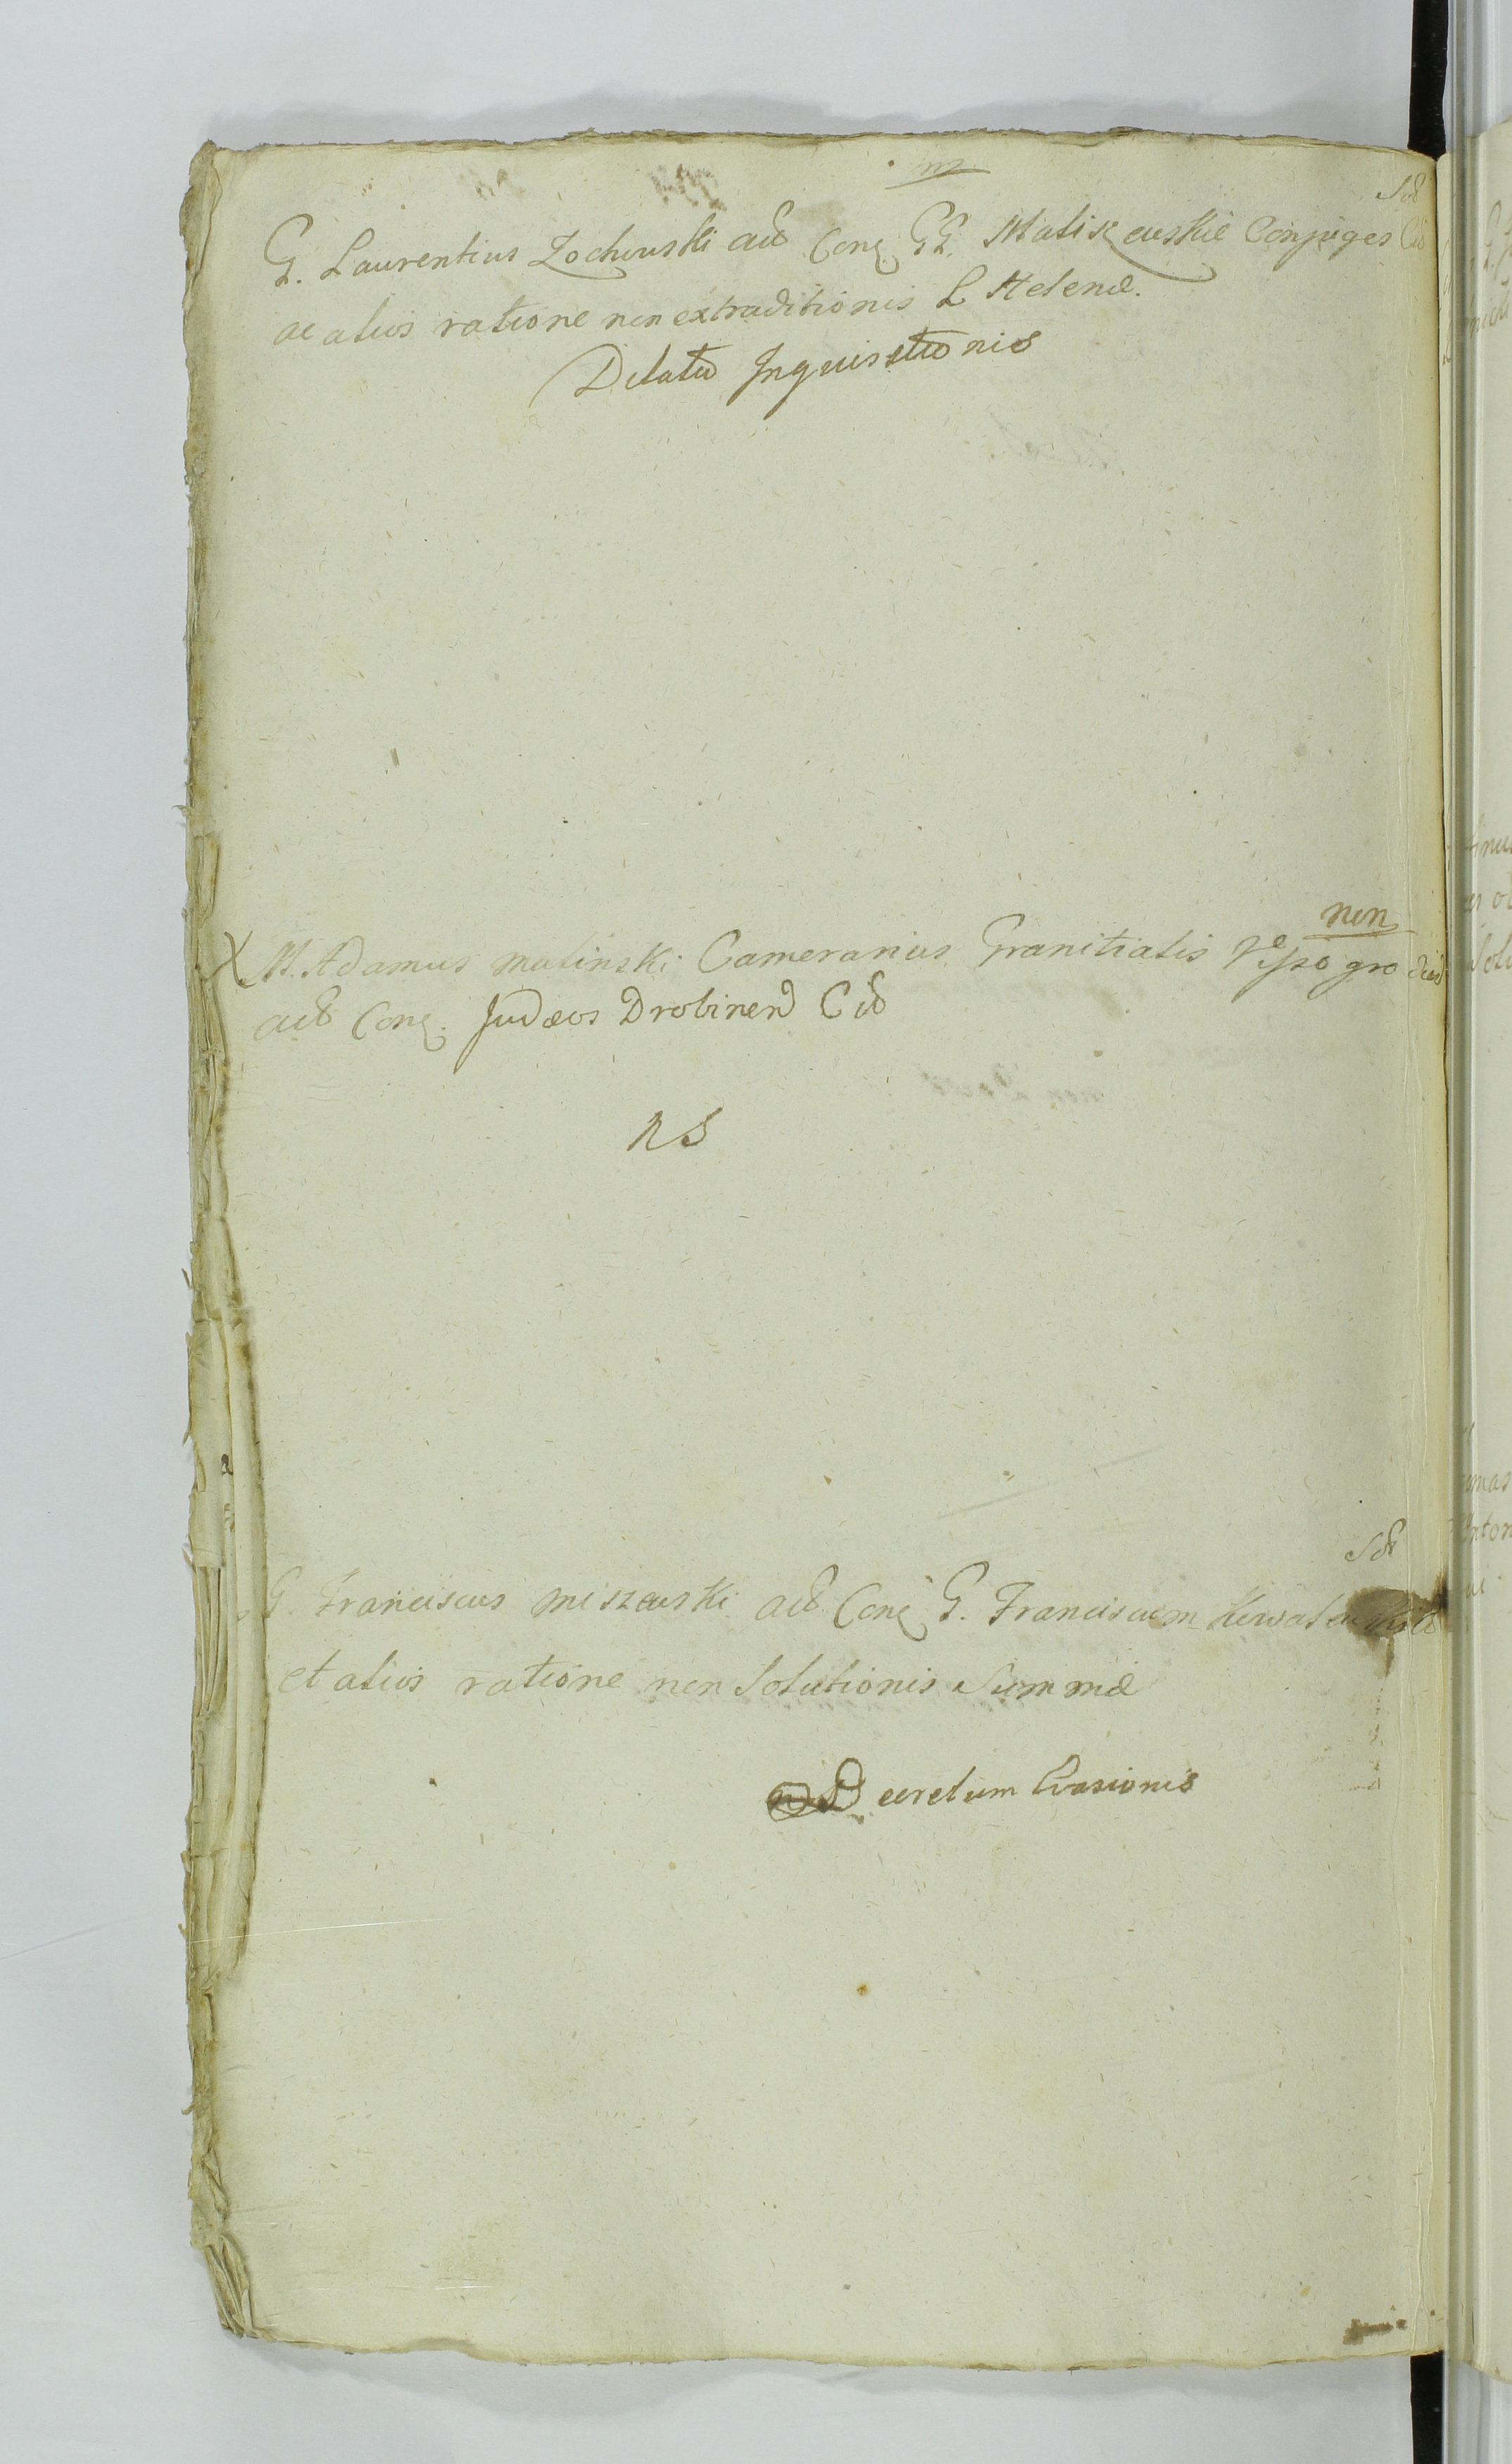 m
Sol
G. Laurentius Zochowski act Conq GG. Maliszewskie Conjuges Cit
ac alios ratione non extraditionis L Helenæ.
Dilatio Inquisitionis
non
M. Adamus malinski Camerarius Granitialis
act Conq. Judæos Drobinen Cit
NS
Sol
G. Franciscus miszewski act Conq G. Franciscum
et alios ratione non Solutionis Summæ
Decretum Evasionis